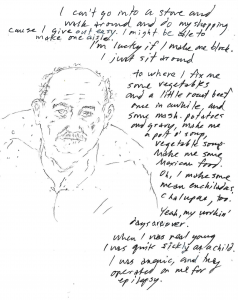 I can't go into a store and
walk around and do my shopping
cause I give out easy. I might be able to
make one aisle.
I'm lucky if I make one block.
I just sit around
to where I fix me
some vegetables
and a little roast beef
once in awhile, and
some mash. potatoes
and gravy, make me
a pot o' soup,
vegetable soup.
Make me some
Mexican food.
Oh, I make some
mean enchiladas,
chalupas, too.
Yeah, my workin'
days are over.
When I was real young
I was quite sickly as a child.
I was anemic, and they
operated on me for
epilepsy.